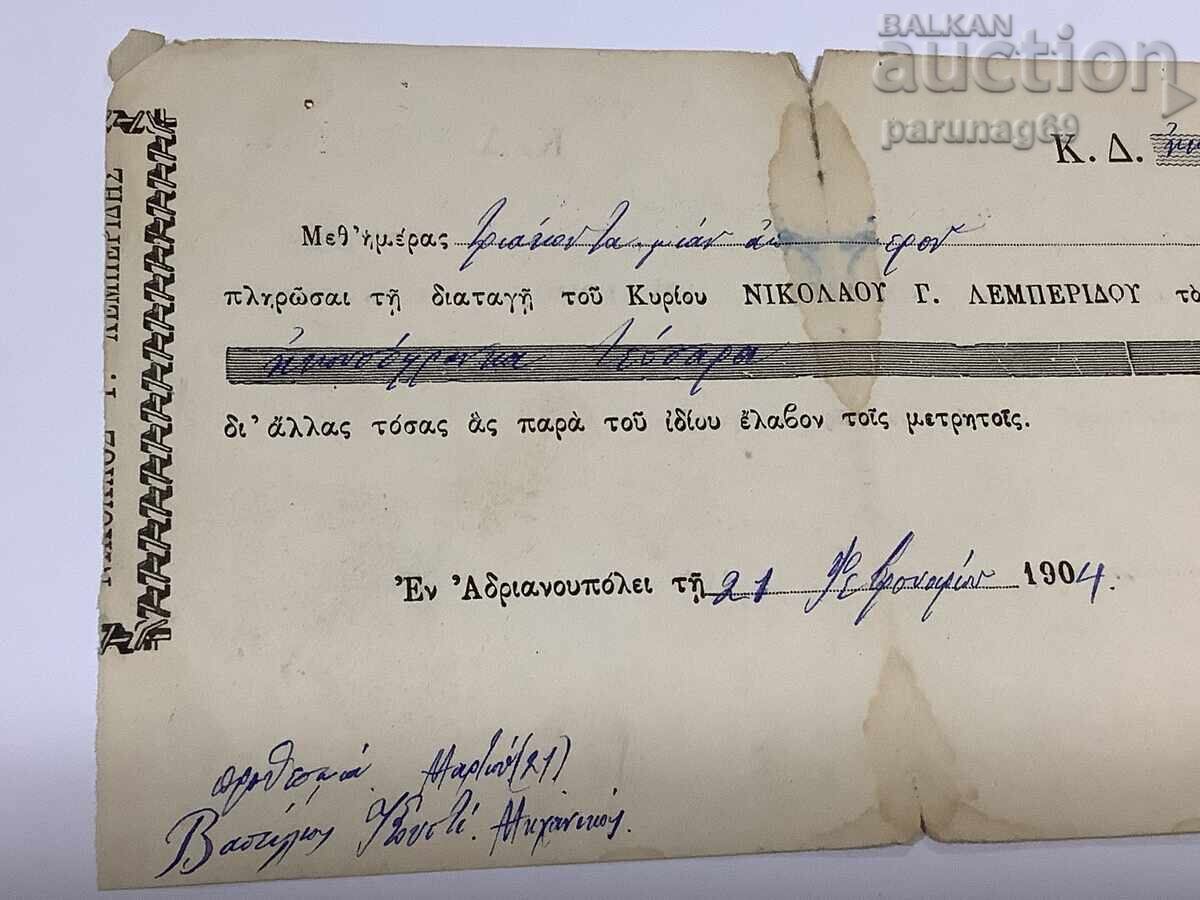 BALKAN
auction
parunag69
Κ. Δ.
ΝΙΚΟΛΑΟΣ Γ. ΛΕΜΠΕΡΙΔΗΣ
Μεθ' ἡμέρας τριάκοντα μιάν
πληρῶσαι τῇ διαταγῇ τοῦ Κυρίου ΝΙΚΟΛΑΟΥ Γ. ΛΕΜΠΕΡΙΔΟΥ τὸ
εἰκοσόγροσα τέσσαρα
δι' ἄλλας τόσας ἃς παρὰ τοῦ ἰδίου ἔλαβον τοῖς μετρητοῖς.
Ἐν Ἀδριανουπόλει τῇ 21 Φεβρουαρίου 1904.
προθεσμία Μαρτίου (21)
Βασίλειος Κωστῆ Μηχανικός.